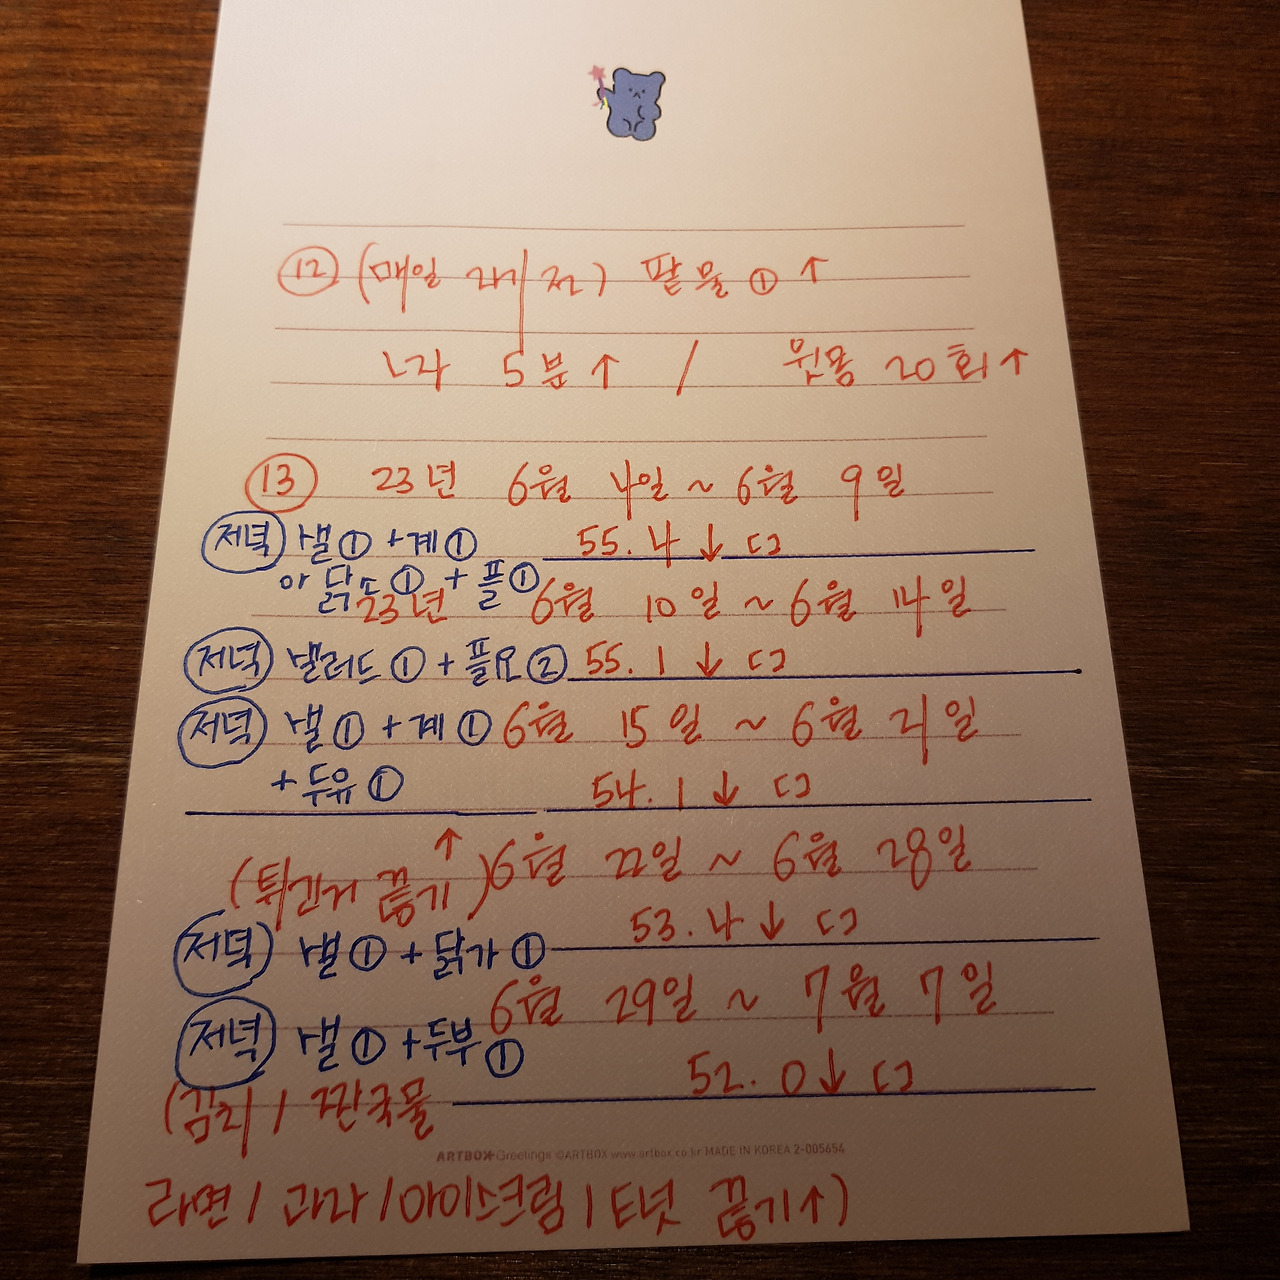 ⑫ (매일 자기 전) 팥물 ① ↑
나 5분 ↑ / 윗몸 20회 ↑
⑬ 23년 6월 4일 ~ 6월 9일
저녁 샐① + 계① 55.4 ↓ ㄷㄱ
아 닭소① + 플①
23년 6월 10일 ~ 6월 14일
저녁 샐러드① + 플요② 55.1 ↓ ㄷㄱ
저녁 샐① + 계① 6월 15일 ~ 6월 21일
+ 두유① 54.1 ↓ ㄷㄱ
(튀긴거 끊기↑) 6월 22일 ~ 6월 28일
53.4 ↓ ㄷㄱ
저녁 샐① + 닭가①
6월 29일 ~ 7월 7일
저녁 샐① + 두부①
52.0 ↓ ㄷㄱ
(김치 / 국물
ARTBOX Greetings ©ARTBOX www.artbox.co.kr MADE IN KOREA 2-005654
라면 / 과자 / 아이스크림 / 도넛 끊기↑)